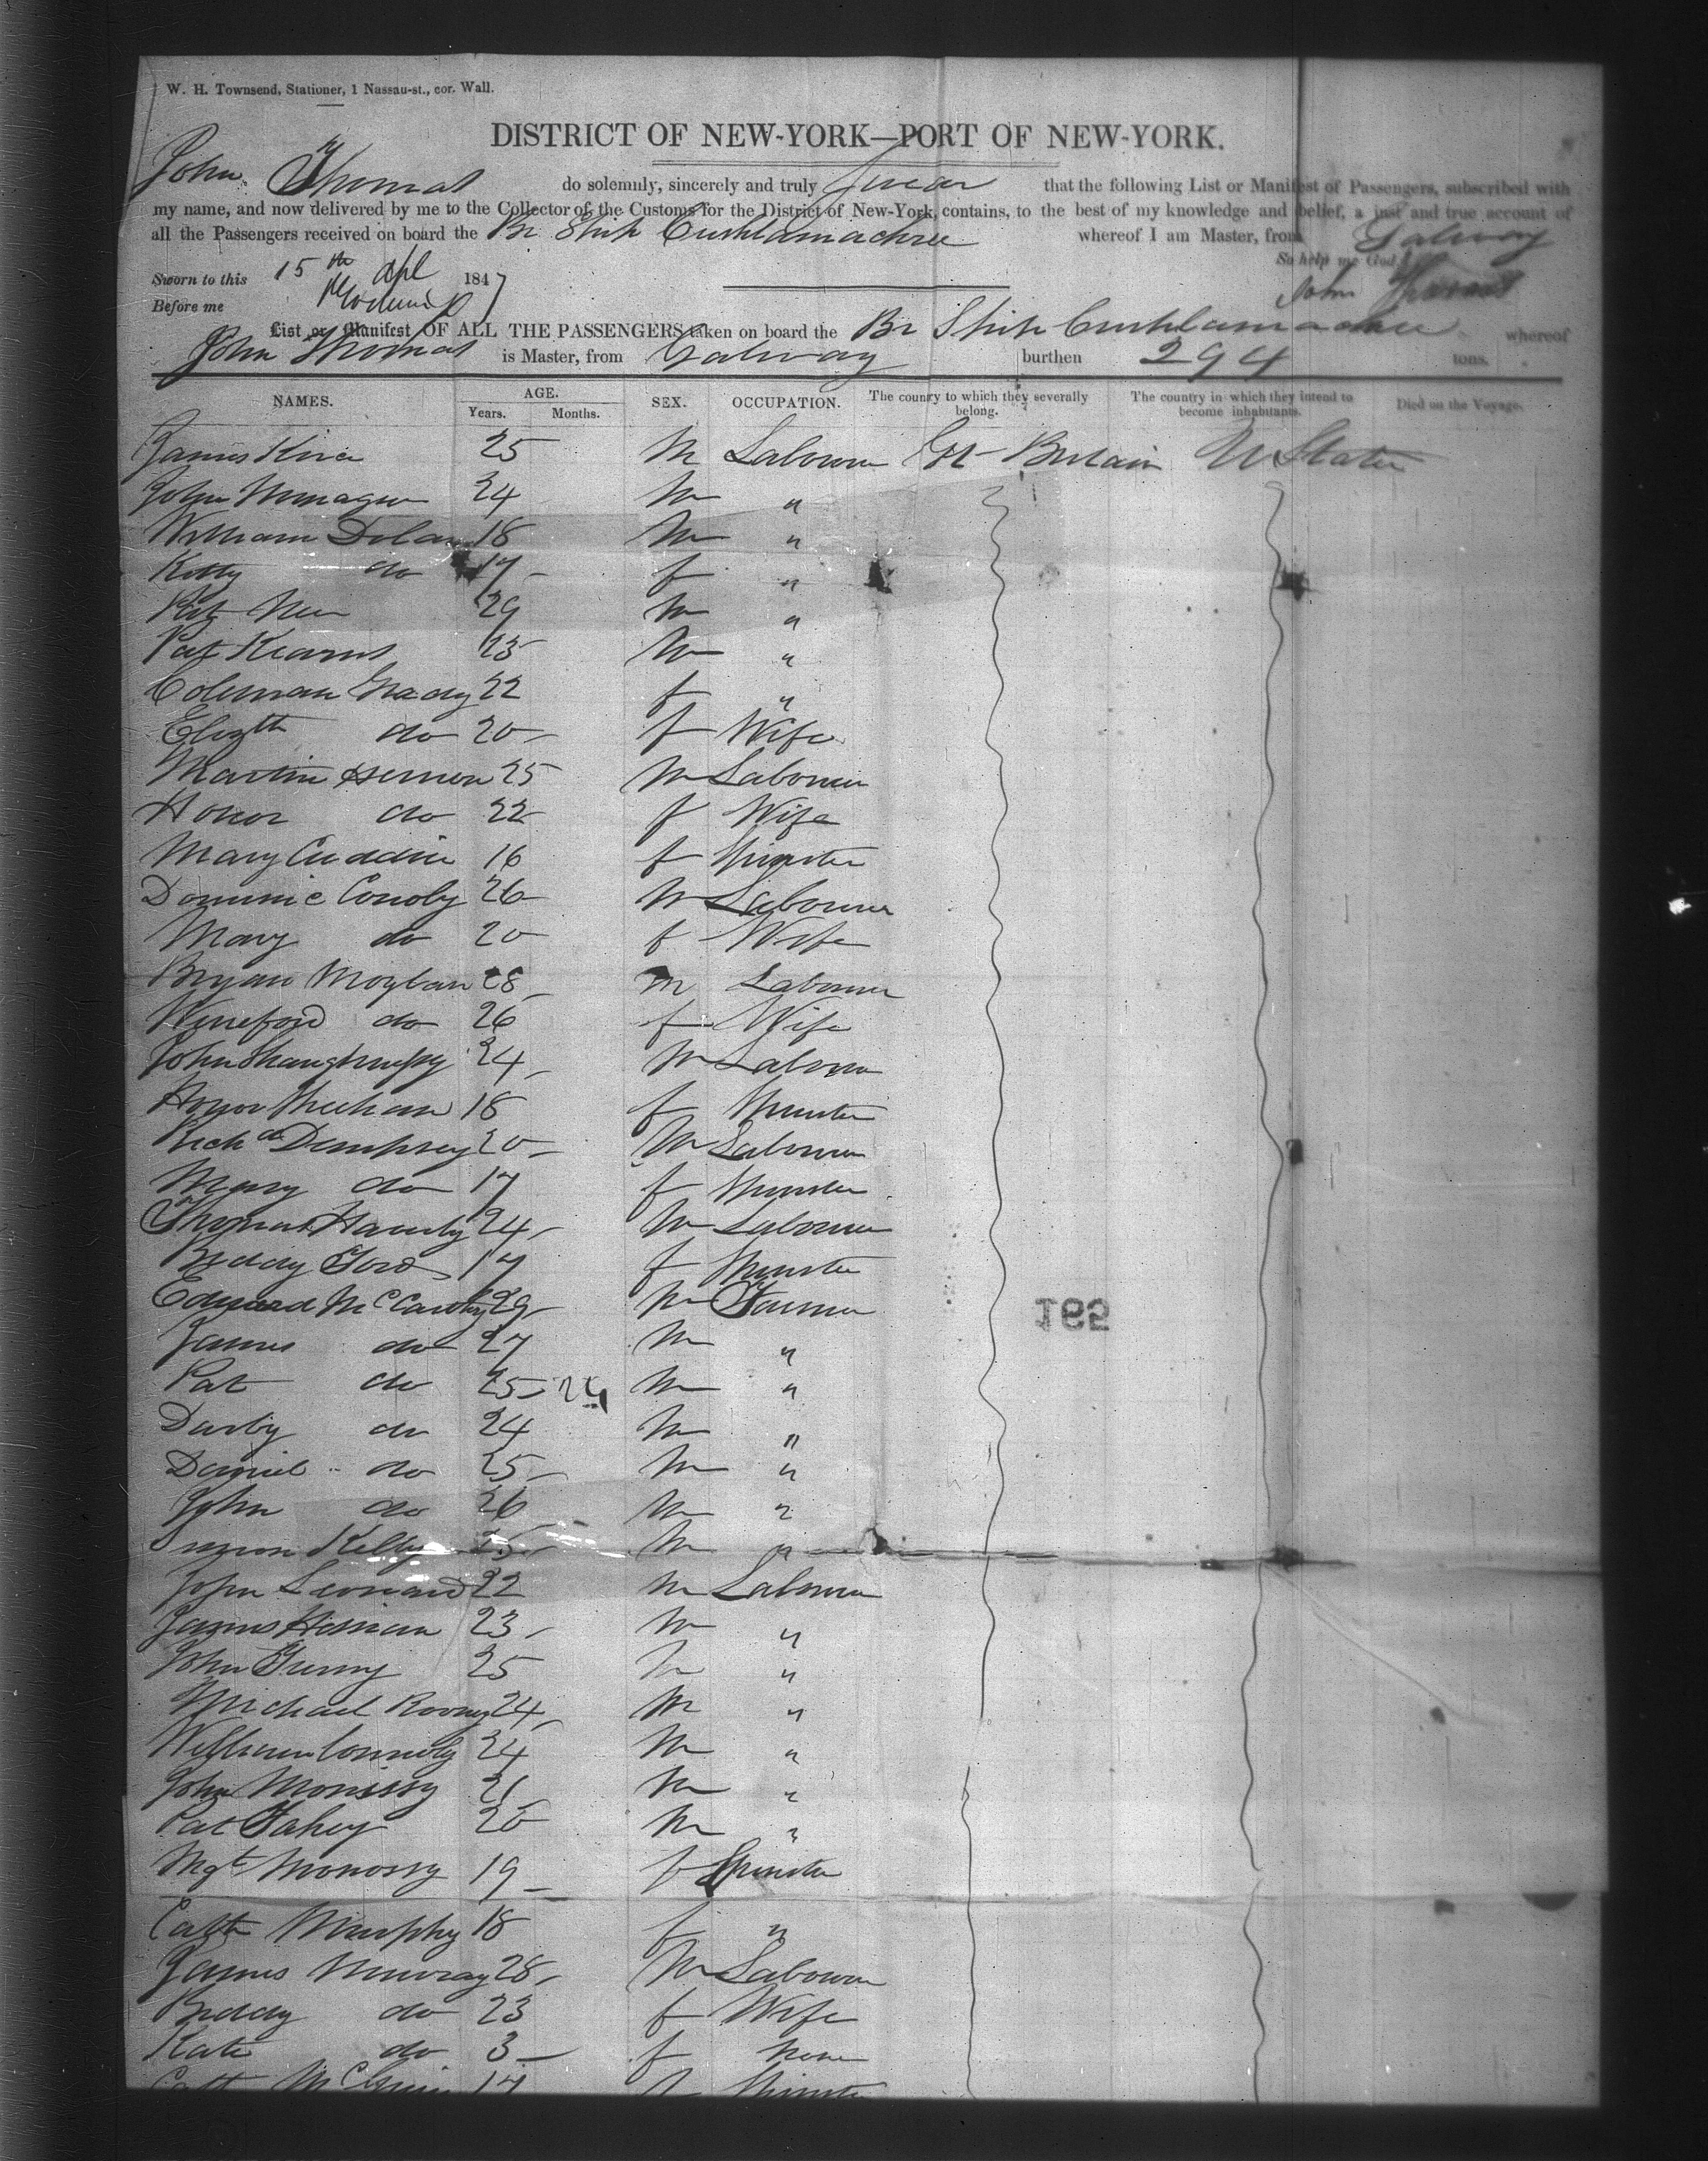 W. H. Townsend, Stationer, 1 Nassau-st., cor. Wall.
DISTRICT OF NEW-YORK—PORT OF NEW-YORK.
John Thomas do solemnly, sincerely and truly Swear that the following List or Manifest of Passengers, subscribed with
my name, and now delivered by me to the Collector of the Customs for the District of New-York, contains, to the best of my knowledge and belief, a just and true account of
all the Passengers received on board the Br Ship Cushlamachree whereof I am Master, from Galway
So help me God.
Sworn to this 15th Apl 1847
John Thomas
Before me
List or Manifest OF ALL THE PASSENGERS taken on board the Br Ship Cushlamachree whereof
John Thomas is Master, from Galway burthen 294 tons.
NAMES. AGE. Years. Months. SEX. OCCUPATION. The country to which they severally belong. The country in which they intend to become inhabitants. Died on the Voyage.
James 25 M Labourer Gt Britain U States
John 24 M "
William Dolan 18 M "
Kitty do 17 f "
Pat 29 M "
Pat Kearns 23 M "
Coleman Grady 22 f "
Elizth do 20 f Wife
Martin Hernon 25 M Labourer
Honor do 22 f Wife
Mary Cuddin 16 f Spinster
Dominic Conoly 26 M Labourer
Mary do 20 f Wife
Bryan Moylan 28 M Labourer
Wineford do 26 f Wife
John Shaughnessy 24 M Labourer
Honor Sheehan 18 f Spinster
Richd Dempsey 20 M Labourer
Mary do 17 f Spinster
Thomas 24 M Labourer
Biddy Ford 17 f Spinster
Edward McCarthy 29 M Farmer
James do 27 M "
Pat do 25 24 M "
Darby do 24 M "
Daniel do 25 M "
John do 26 M "
Kelly 25 M "
John Leonard 22 M Labourer
James 23 M "
John 25 M "
Michael Rooney 24 M "
William Connoly 24 M "
John Morissy 21 M "
Pat Fahey 20 M "
Mgt Morossy 19 f Spinster
Cath Murphy 18 f "
James Murray 28 M Labourer
Biddy do 23 f Wife
Kate do 3 f None
Cath 17 f Spinster
195